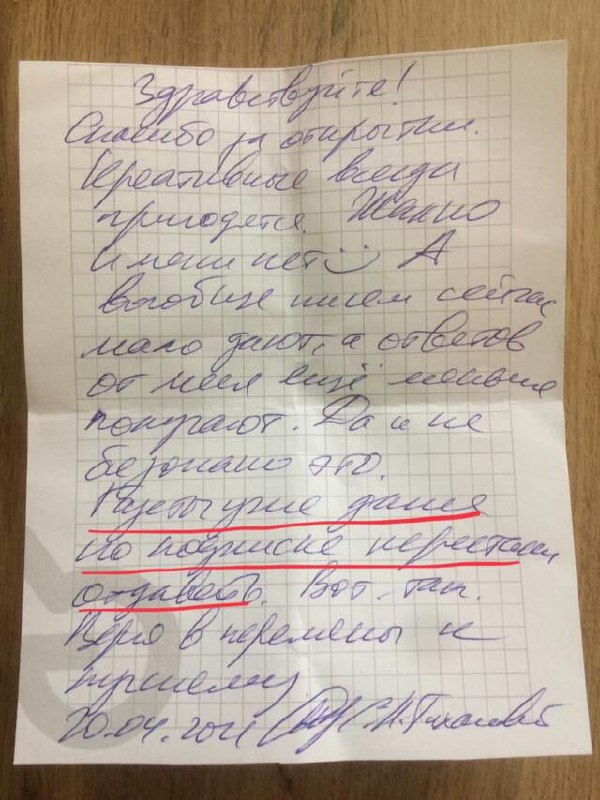 Здравствуйте!
Спасибо за открытки.
Креативные всегда
пригодятся. Жалко
имени нет :) А
вообще писем сейчас
мало дают, а ответов
от меня ещё меньше
получают. Да и не
безопасно это.
Газеты уже даже
по подписке перестали
отдавать. Вот так.
Верю в перемены к
лучшему
20.04.2021 С.Н. Тихановский